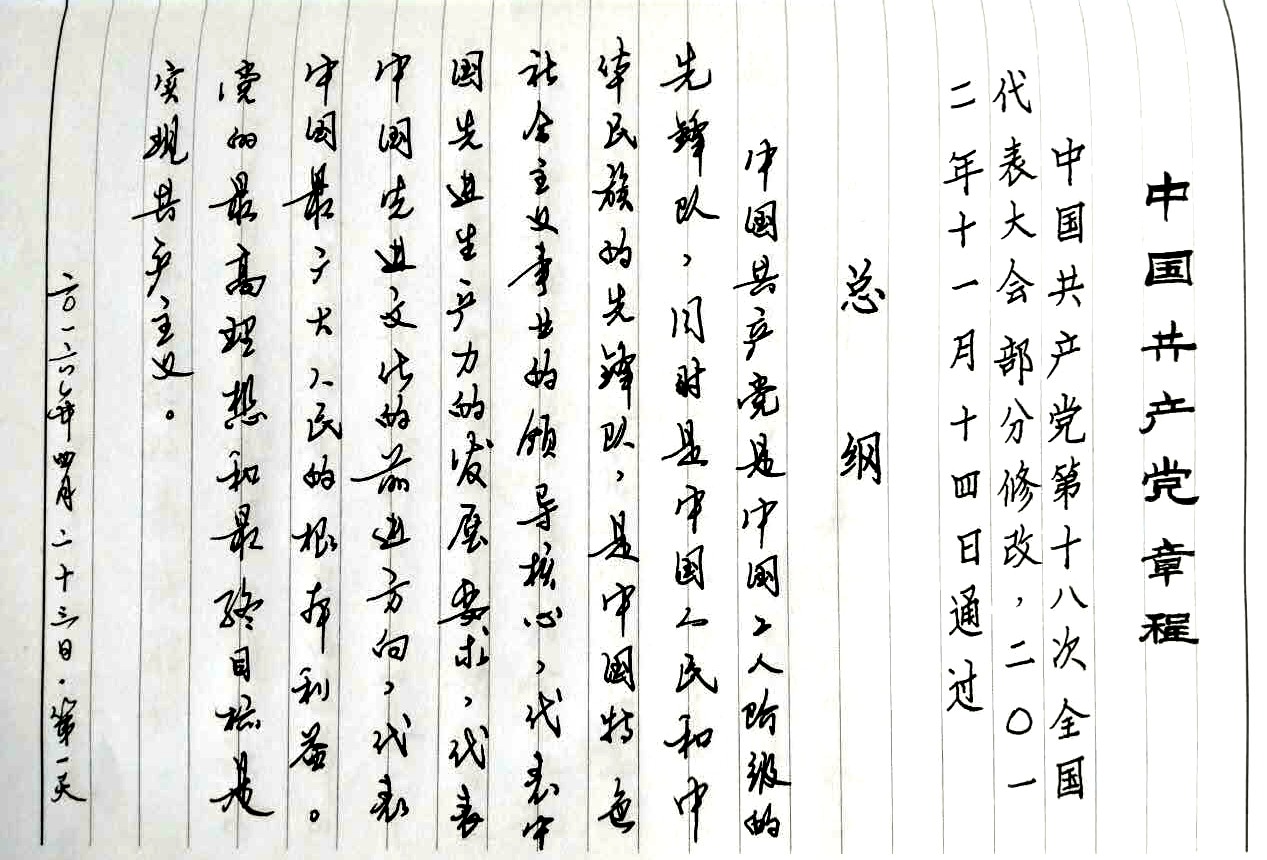 中国共产党章程
中国共产党第十八次全国
代表大会部分修改，二〇一
二年十一月十四日通过
总纲
中国共产党是中国工人阶级的
先锋队，同时是中国人民和中
华民族的先锋队，是中国特色
社会主义事业的领导核心，代表中
国先进生产力的发展要求，代表
中国先进文化的前进方向，代表
中国最广大人民的根本利益。
党的最高理想和最终目标是
实现共产主义。
二〇一六年四月二十三日·第一天